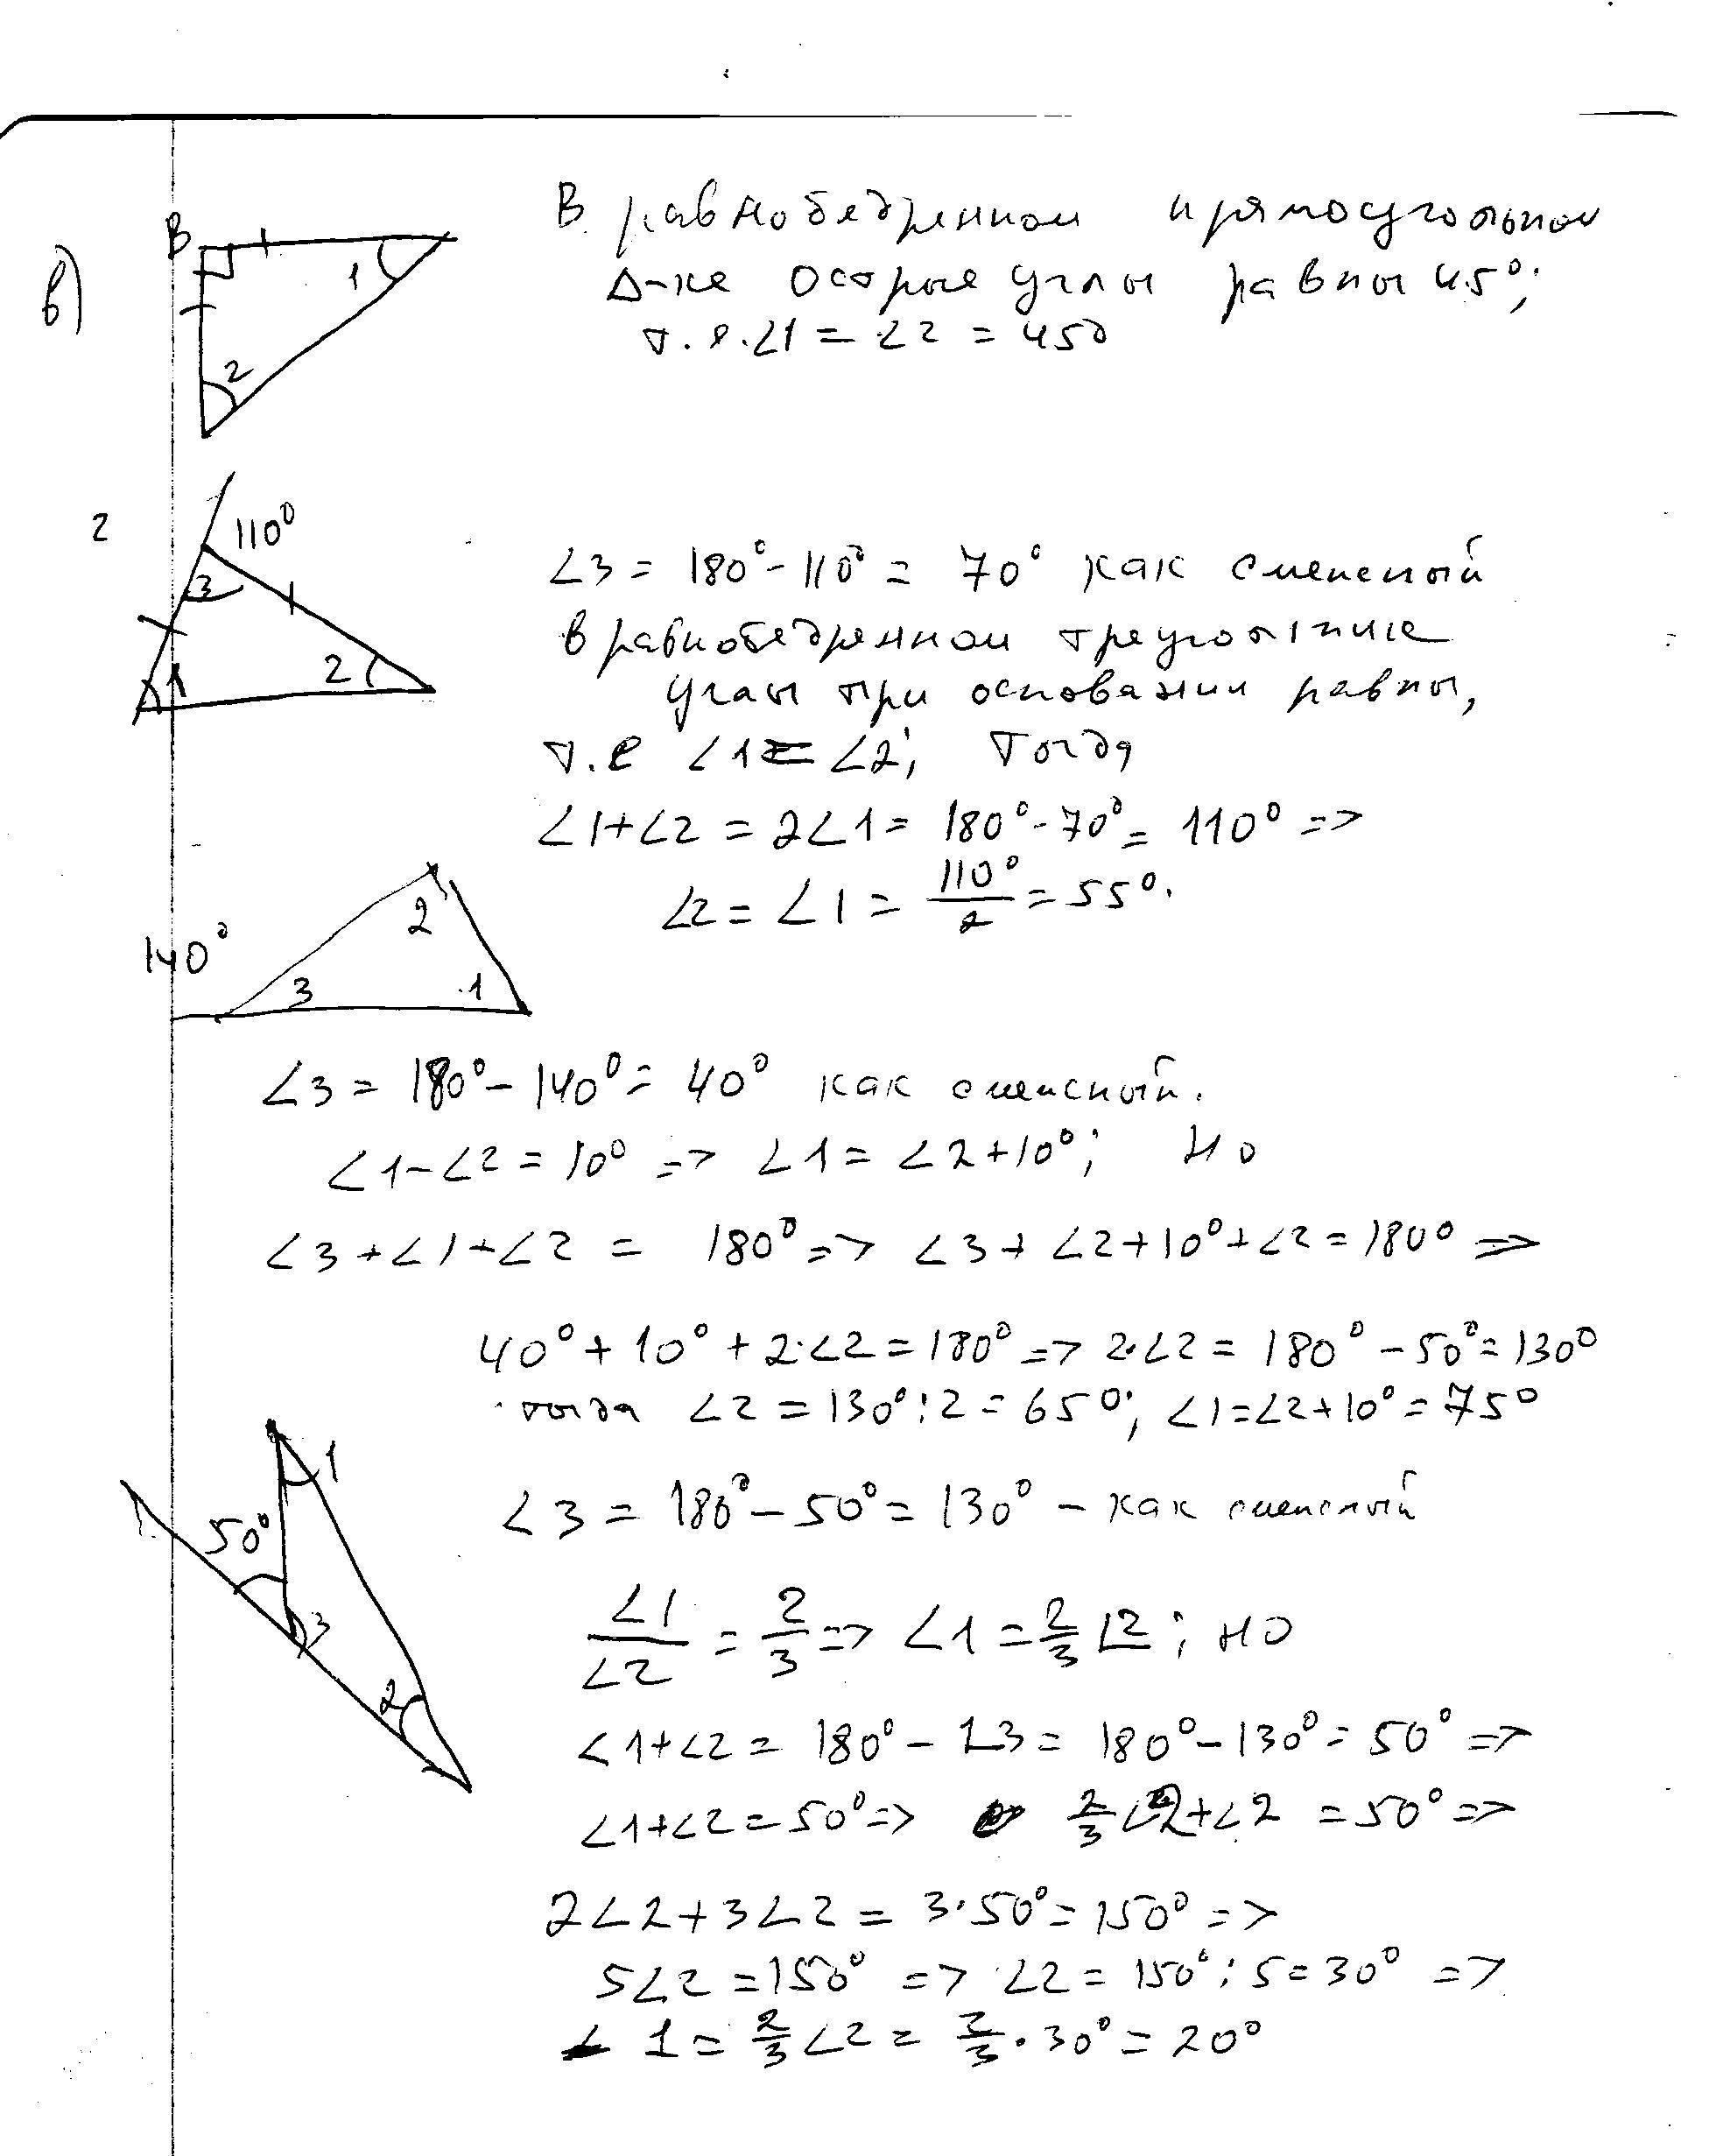 в)
B
1
2
В равнобедренном прямоугольном
Δ-ке острые углы равны 45°;
т.е. ∠1 = ∠2 = 45°
г
110°
3
1
2
∠3 = 180° - 110° = 70° как смежный
в равнобедренном треугольнике
углы при основании равны,
т.е ∠1 = ∠2; тогда
∠1+∠2 = 2∠1 = 180° - 70° = 110° =>
∠2 = ∠1 = 110°/2 = 55°.
140°
2
3
1
∠3 = 180° - 140° = 40° как смежный.
∠1-∠2 = 10° => ∠1 = ∠2+10°; но
∠3+∠1+∠2 = 180° => ∠3+∠2+10°+∠2 = 180° =>
40°+10°+2·∠2 = 180° => 2·∠2 = 180° - 50° = 130°
тогда ∠2 = 130°:2 = 65°; ∠1=∠2+10° = 75°
1
50°
3
2
∠3 = 180° - 50° = 130° - как смежный
∠1/∠2 = 2/3 => ∠1 = 2/3 ∠2; но
∠1+∠2 = 180° - ∠3 = 180° - 130° = 50° =>
∠1+∠2 = 50° => 2/3 ∠2+∠2 = 50° =>
2∠2+3∠2 = 3·50° = 150° =>
5∠2 = 150° => ∠2 = 150°:5 = 30° =>
∠1 = 2/3 ∠2 = 2/3 · 30° = 20°